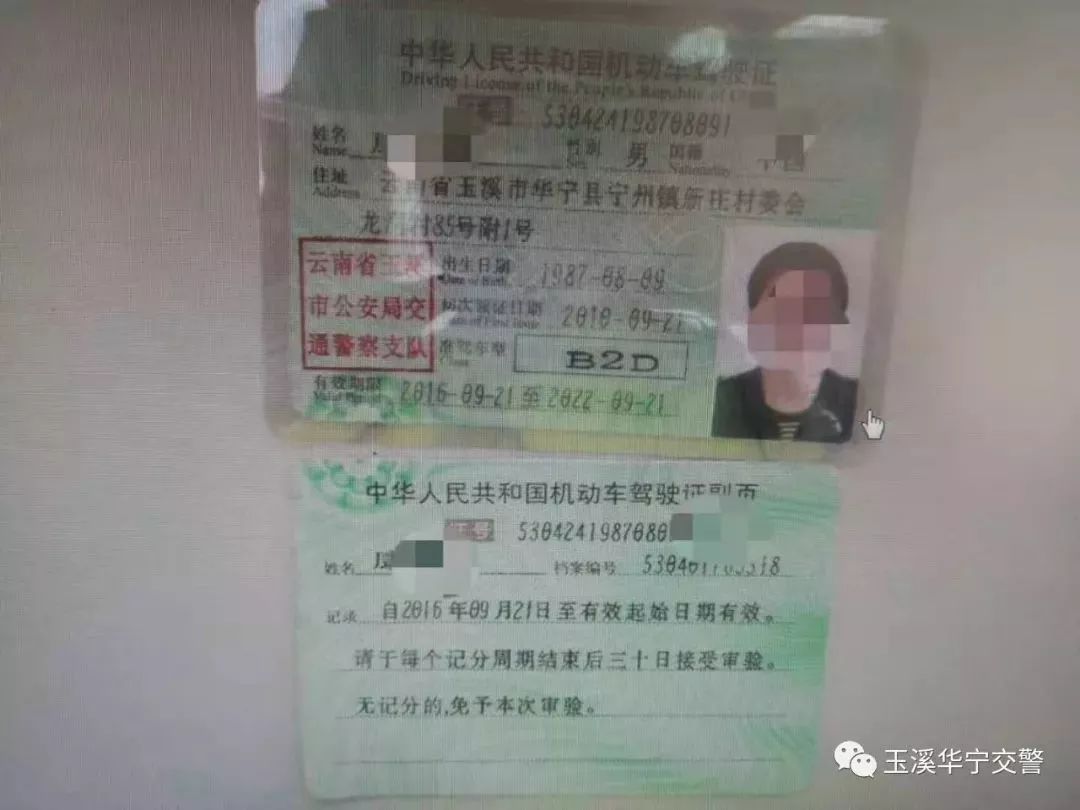 中华人民共和国机动车驾驶证
Driving License of the People's Republic of
530424198708091
姓名
Name
性别 男 国籍
Sex Nationality 中国
住址
Address 云南省玉溪市华宁县宁州镇新庄村委会
村85号附1号
云南省玉溪
市公安局交
通警察支队
出生日期 1987-08-09
Date of Birth
初次领证日期 2010-09-21
Date of First Issue
准驾车型 B2D
Class
有效期限 2016-09-21 至 2022-09-21
Valid Period
中华人民共和国机动车驾驶证副页
证号 5304241987080
姓名 档案编号
记录 自2016年09月21日至有效起始日期有效。
请于每个记分周期结束后三十日接受审验。
无记分的,免予本次审验。
玉溪华宁交警